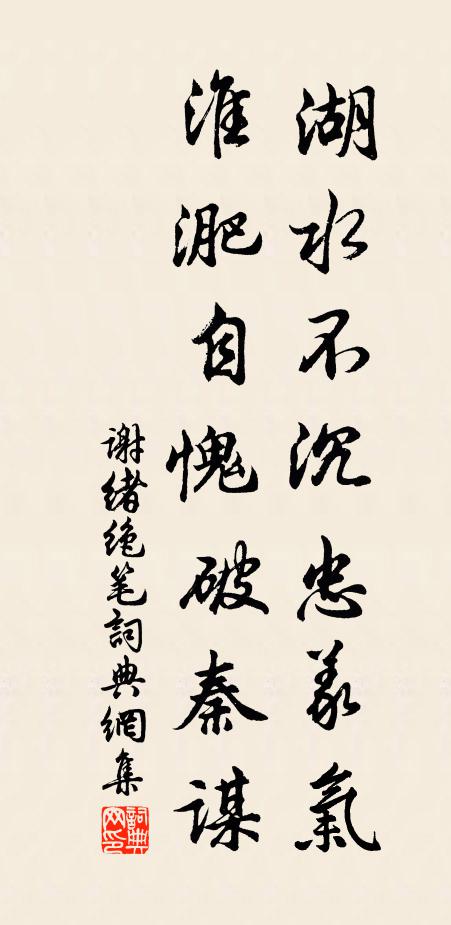 湖水不沉忠義氣
淮淝自愧破秦謀
谢緒绝笔詞典網集
詞典网印